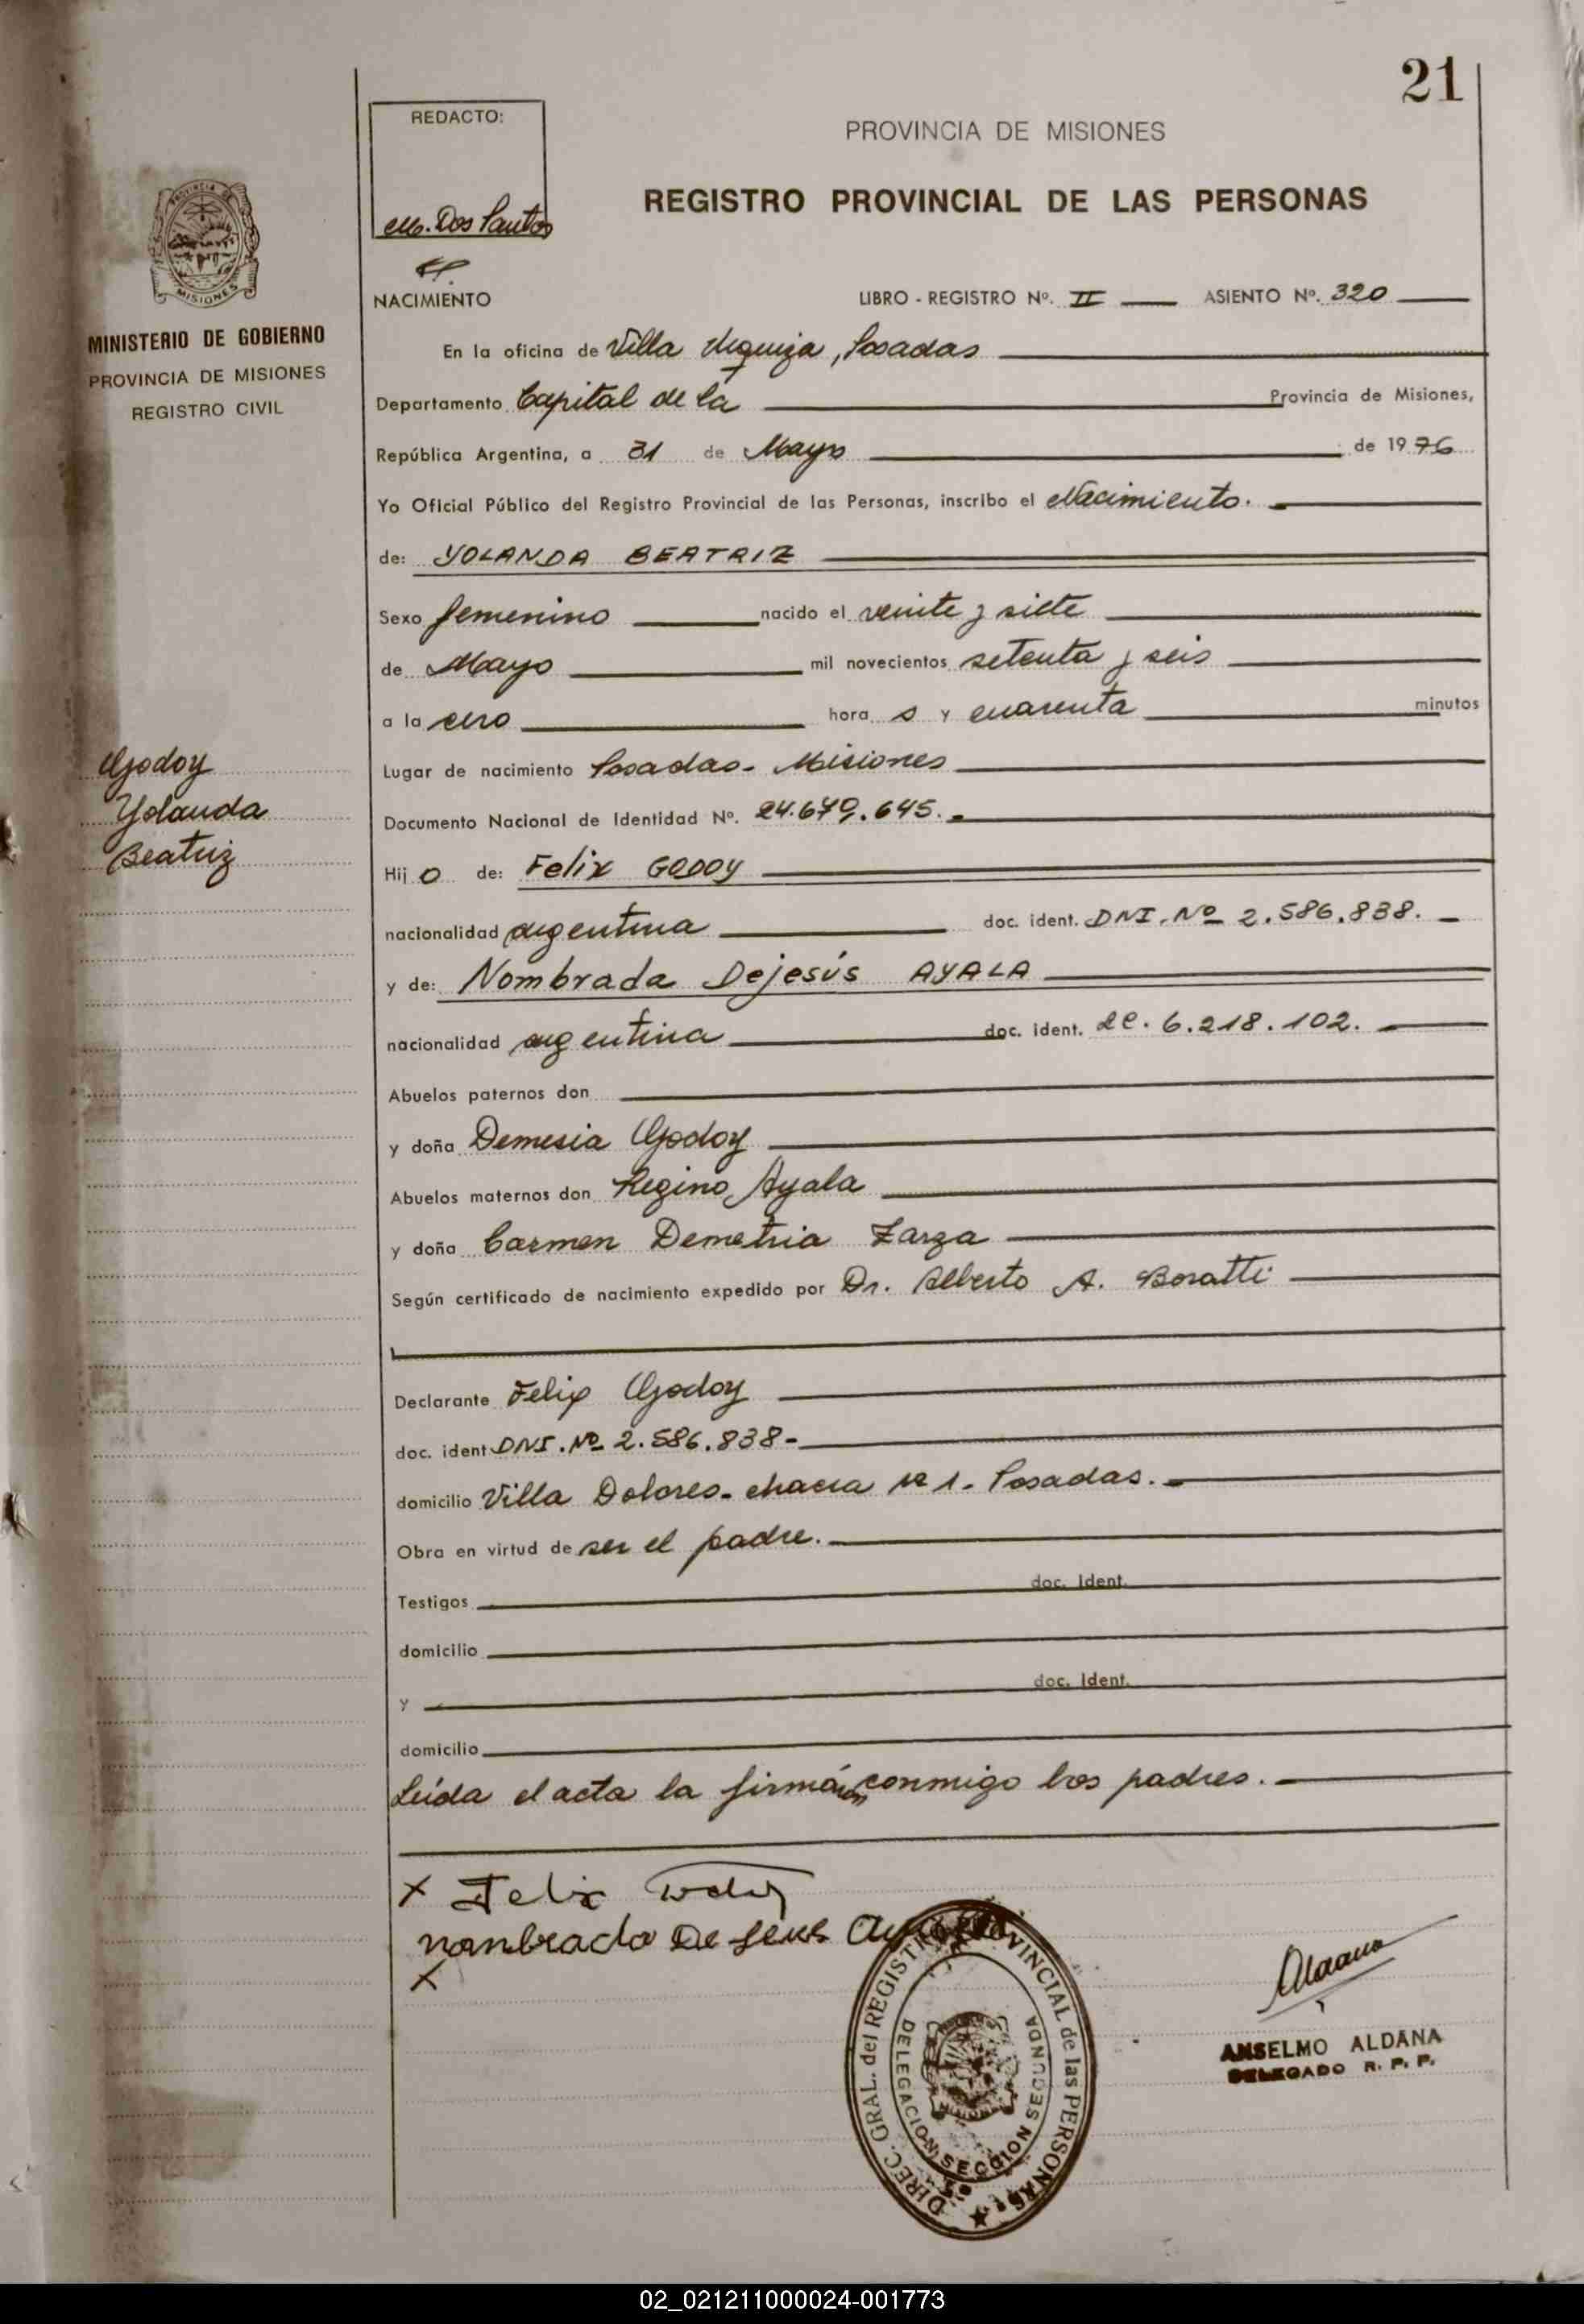 21
REDACTO:
M. Dos Santos
PROVINCIA DE MISIONES
REGISTRO PROVINCIAL DE LAS PERSONAS
PROVINCIA DE
MISIONES
MINISTERIO DE GOBIERNO
PROVINCIA DE MISIONES
REGISTRO CIVIL
NACIMIENTO LIBRO - REGISTRO Nº. II ASIENTO Nº. 320
En la oficina de Villa Urquiza, Posadas
Departamento Capital de la Provincia de Misiones,
República Argentina, a 31 de Mayo de 1976
Yo Oficial Público del Registro Provincial de las Personas, inscribo el Nacimiento.
de: YOLANDA BEATRIZ
Sexo femenino nacido el veinte y siete
de Mayo mil novecientos setenta y seis
a la cero hora s y cuarenta minutos
Godoy
Yolanda
Beatriz
Lugar de nacimiento Posadas- Misiones
Documento Nacional de Identidad Nº. 24.670.645.
Hij o de: Felix GODOY
nacionalidad argentina doc. ident. DNI. Nº 2.586.838.
y de: Nombrada Dejesús AYALA
nacionalidad argentina doc. ident. LC. 6.218.102.
Abuelos paternos don
y doña Demesia Godoy
Abuelos maternos don Regino Ayala
y doña Carmen Demetria Zarza
Según certificado de nacimiento expedido por Dr. Alberto A. Boratti
Declarante Felix Godoy
doc. ident DNI. Nº 2.586.838-
domicilio Villa Dolores- chacra Nº 1- Posadas.
Obra en virtud de ser el padre.
Testigos doc. Ident.
domicilio
y doc. Ident.
domicilio
Leída el acta la firmán conmigo los padres.
x Felix Godoy
nombrada De Jesus Ayala
x
DIREC. GRAL. del REGISTRO PROVINCIAL de las PERSONAS
DELEGACION SECCION SEGUNDA
MISIONES
Aldana
ANSELMO ALDANA
DELEGADO R. P. P.
02_021211000024-001773